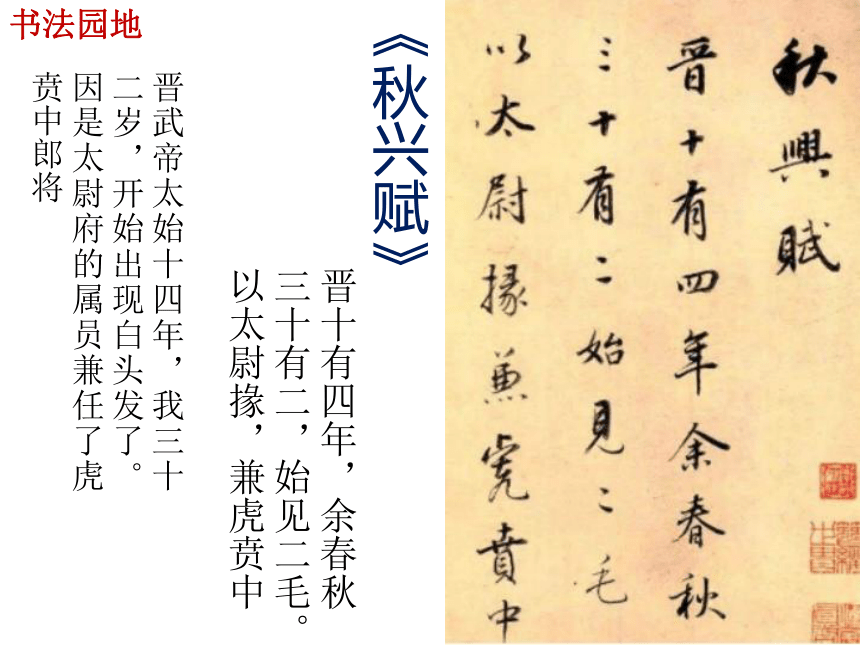 书法园地
《秋兴赋》
晋十有四年，余春秋
三十有二，始见二毛。
以太尉掾，兼虎贲中
晋武帝太始十四年，我三十
二岁，开始出现白头发了。
因是太尉府的属员兼任了虎
贲中郎将
秋興賦
晉十有四年余春秋
三十有二始見二毛
以太尉掾兼虎賁中